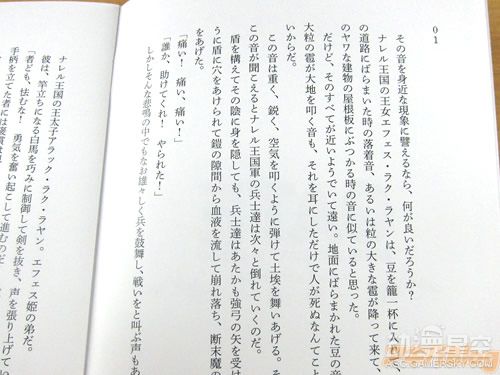 01
その音を身近な現象に譬えるなら、何が良いだろうか？
ナレル王国の王女エフェス・ラク・ラヤンは、豆を籠一杯に入
の道路にばらまいた時の落着音、あるいは粒の大きな雹が降って来て、
のヤワな建物の屋根板にぶつかる時の音に似ていると思った。
だけど、そのすべてが近いようでいて遠い。地面にばらまかれた豆の音
大粒の雹が大地を叩く音も、それを耳にしただけで人が死ぬなんてこ
いからだ。
この音は重く、鋭く、空気を叩くように弾けて土埃を舞いあげる。そ
この音が聞こえるとナレル王国軍の兵士達は次々と倒れていくのだ。
盾を構えてその陰に身を隠しても、兵士達はあたかも強弓の矢を受け
うに盾に穴をあけられて鎧の隙間から血液を流して崩れ落ち、断末魔の
をあげた。
「痛い！　痛い、痛い！」
「誰か、助けてくれ！　やられた！」
しかしそんな悲鳴の中でもなお雄々しく兵を鼓舞し、戦いをと叫ぶ声もあ
ナレル王国の王太子アラック・ラク・ラヤン。エフェス姫の弟だ。
彼は、竿立ちになる白馬を巧みに制御して剣を抜き、声を張り上げてい
「者ども、怯むな！　勇気を奮い起こして進むのだ
手柄を立てた者には褒賞
ACG.GAMERSKY.COM